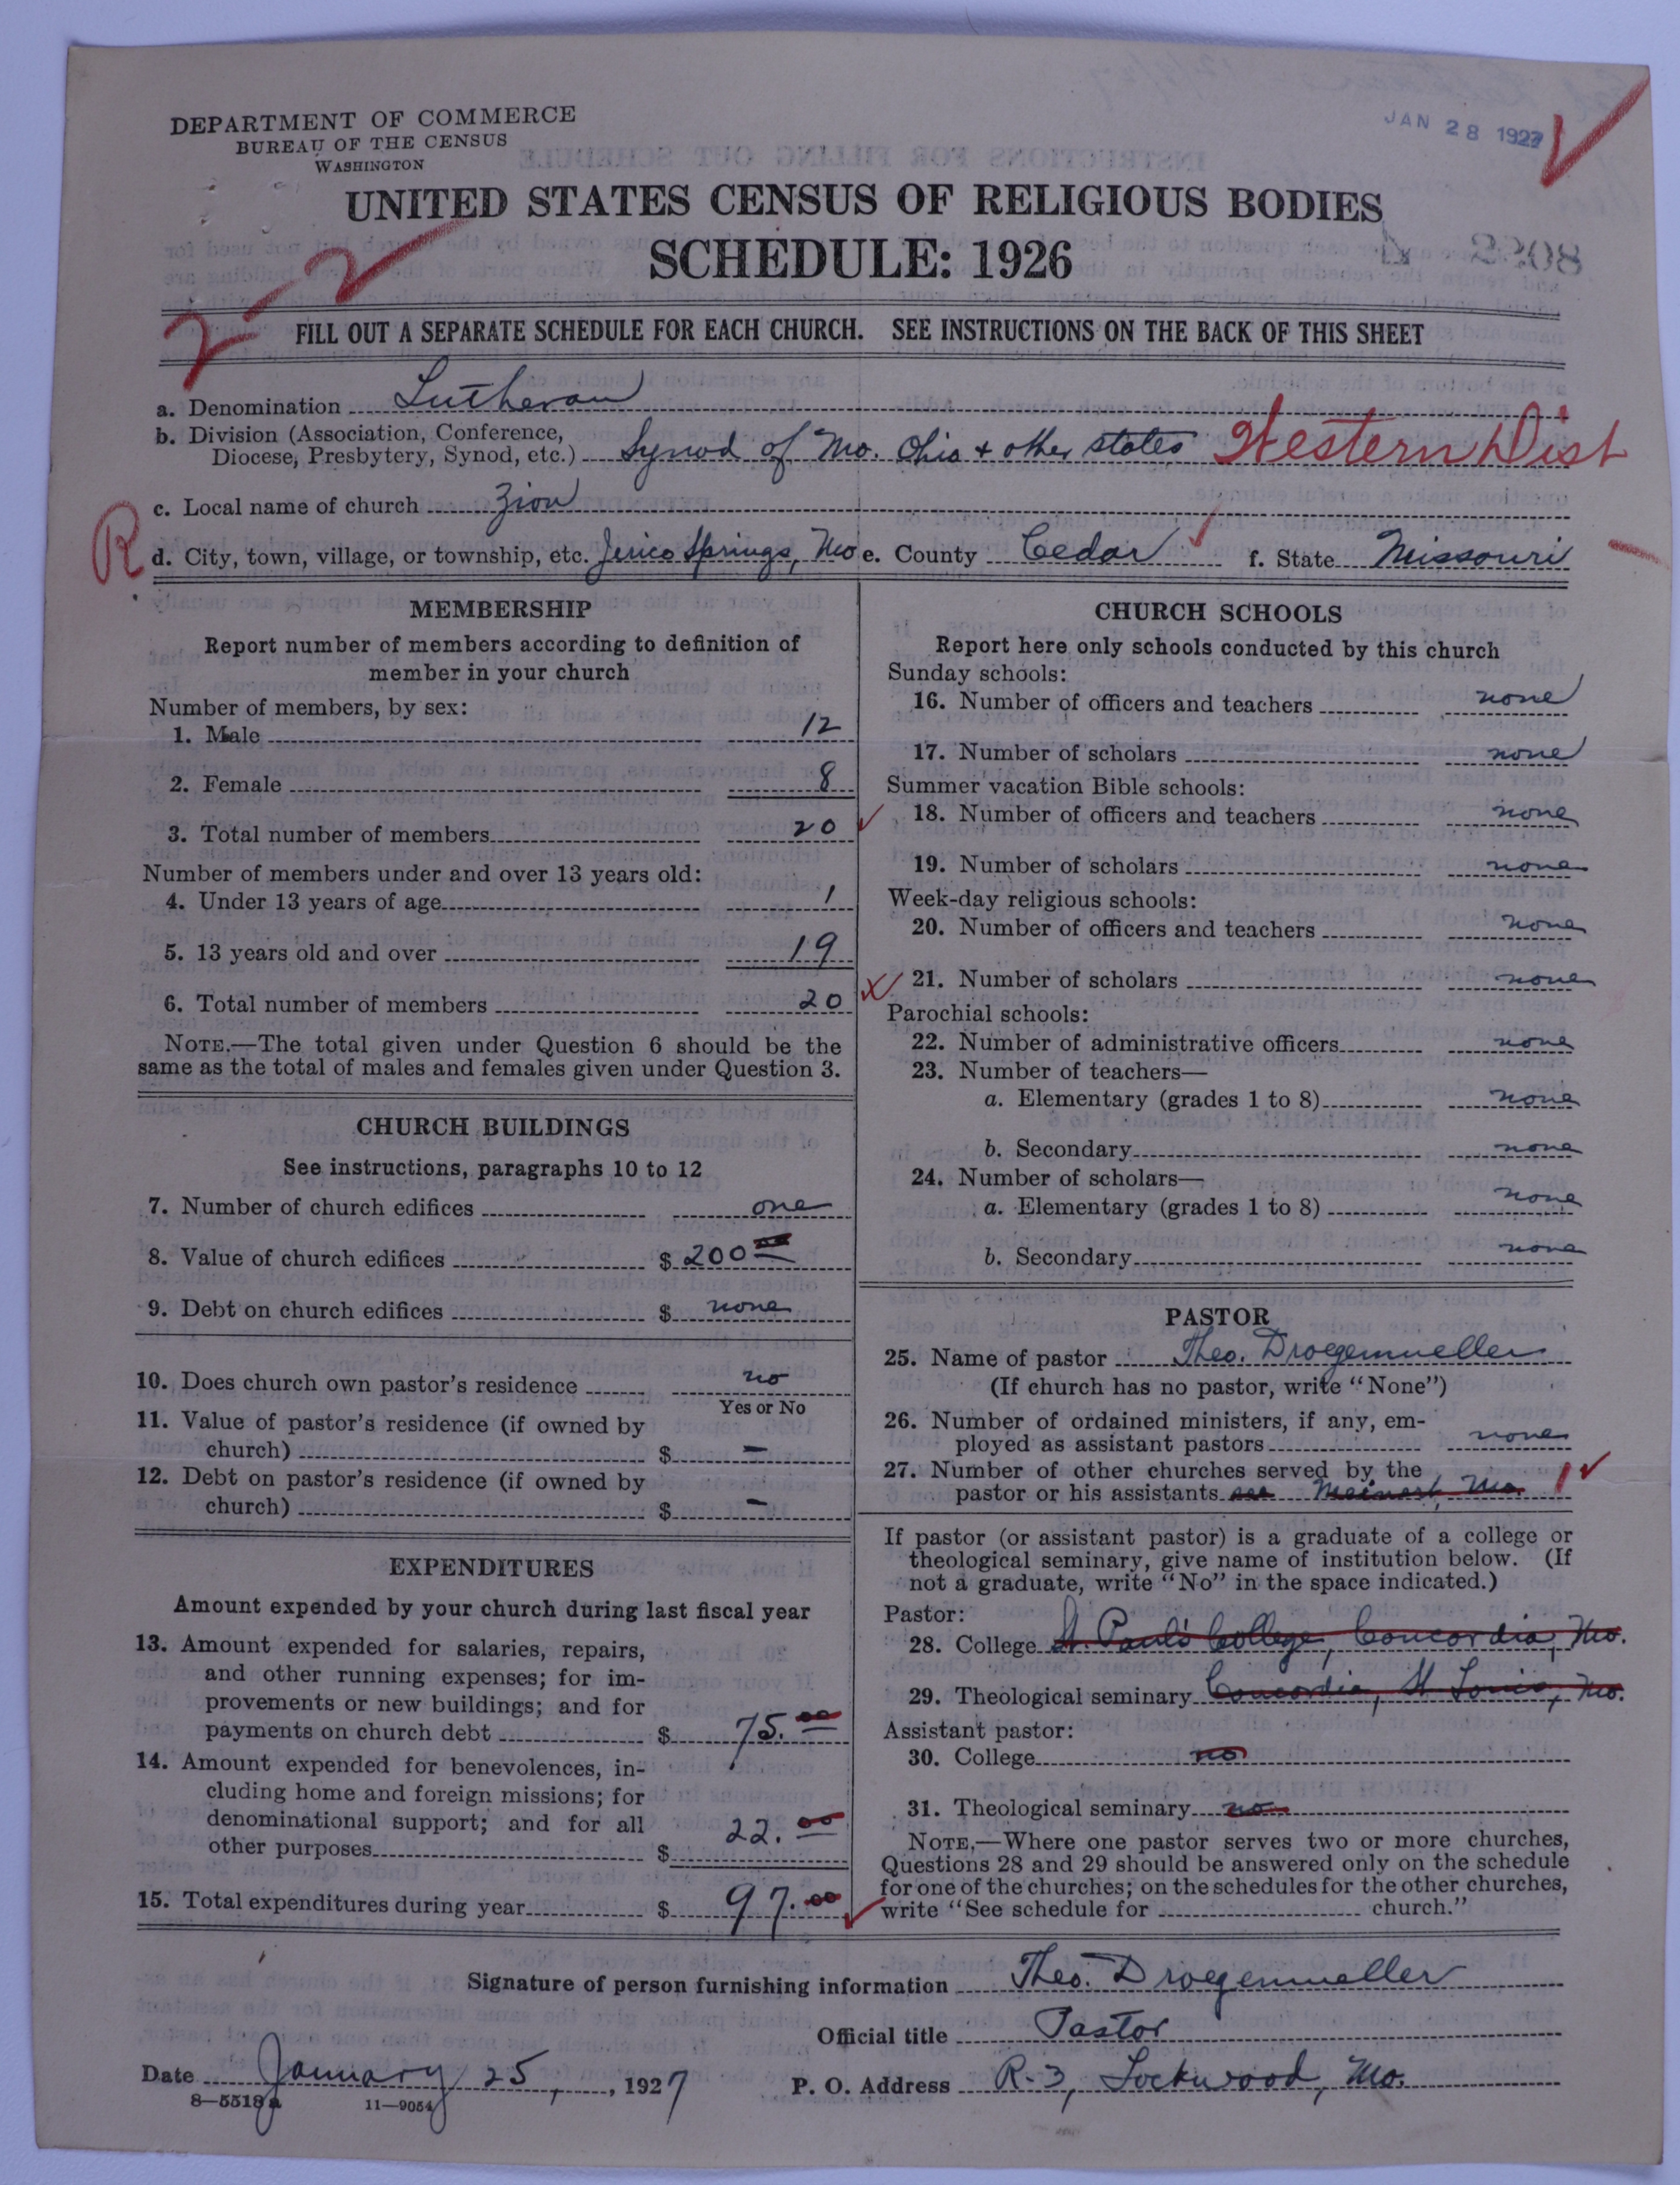 DEPARTMENT OF COMMERCE
BUREAU OF THE CENSUS
WASHINGTON
JAN 28 1927
UNITED STATES CENSUS OF RELIGIOUS BODIES
SCHEDULE: 1926
2-2
FILL OUT A SEPARATE SCHEDULE FOR EACH CHURCH. SEE INSTRUCTIONS ON THE BACK OF THIS SHEET
a. Denomination Lutheran
b. Division (Association, Conference,
Diocese, Presbytery, Synod, etc.) Synod of Mo. Ohio + other states Western Dist
c. Local name of church Zion
R d. City, town, village, or township, etc. Jerico Springs, Mo e. County Cedar f. State Missouri
MEMBERSHIP
Report number of members according to definition of
member in your church
Number of members, by sex:
1. Male 12
2. Female 8
3. Total number of members 20
Number of members under and over 13 years old:
4. Under 13 years of age 1
5. 13 years old and over 19
6. Total number of members 20
NOTE.—The total given under Question 6 should be the
same as the total of males and females given under Question 3.
CHURCH BUILDINGS
See instructions, paragraphs 10 to 12
7. Number of church edifices one
8. Value of church edifices $ 200 00
9. Debt on church edifices $ none
10. Does church own pastor's residence no
Yes or No
11. Value of pastor's residence (if owned by
church) $ –
12. Debt on pastor's residence (if owned by
church) $ –
EXPENDITURES
Amount expended by your church during last fiscal year
13. Amount expended for salaries, repairs,
and other running expenses; for im-
provements or new buildings; and for
payments on church debt $ 75.00
14. Amount expended for benevolences, in-
cluding home and foreign missions; for
denominational support; and for all
other purposes $ 22.00
15. Total expenditures during year $ 97.00
CHURCH SCHOOLS
Report here only schools conducted by this church
Sunday schools:
16. Number of officers and teachers none
17. Number of scholars none
Summer vacation Bible schools:
18. Number of officers and teachers none
19. Number of scholars none
Week-day religious schools:
20. Number of officers and teachers none
21. Number of scholars none
Parochial schools:
22. Number of administrative officers none
23. Number of teachers—
a. Elementary (grades 1 to 8) none
b. Secondary none
24. Number of scholars—
a. Elementary (grades 1 to 8) none
b. Secondary none
PASTOR
25. Name of pastor Theo. Droegemueller
(If church has no pastor, write "None")
26. Number of ordained ministers, if any, em-
ployed as assistant pastors none
27. Number of other churches served by the
pastor or his assistants Meinert, Mo. 1
If pastor (or assistant pastor) is a graduate of a college or
theological seminary, give name of institution below. (If
not a graduate, write "No" in the space indicated.)
Pastor:
28. College St. Paul's College, Concordia, Mo.
29. Theological seminary Concordia, St Louis, Mo.
Assistant pastor:
30. College no
31. Theological seminary no
NOTE.—Where one pastor serves two or more churches,
Questions 28 and 29 should be answered only on the schedule
for one of the churches; on the schedules for the other churches,
write "See schedule for church."
Signature of person furnishing information Theo. Droegemueller
Official title Pastor
Date January 25, , 1927 P. O. Address R-3, Lockwood, Mo.
8—5518 a 11—9054